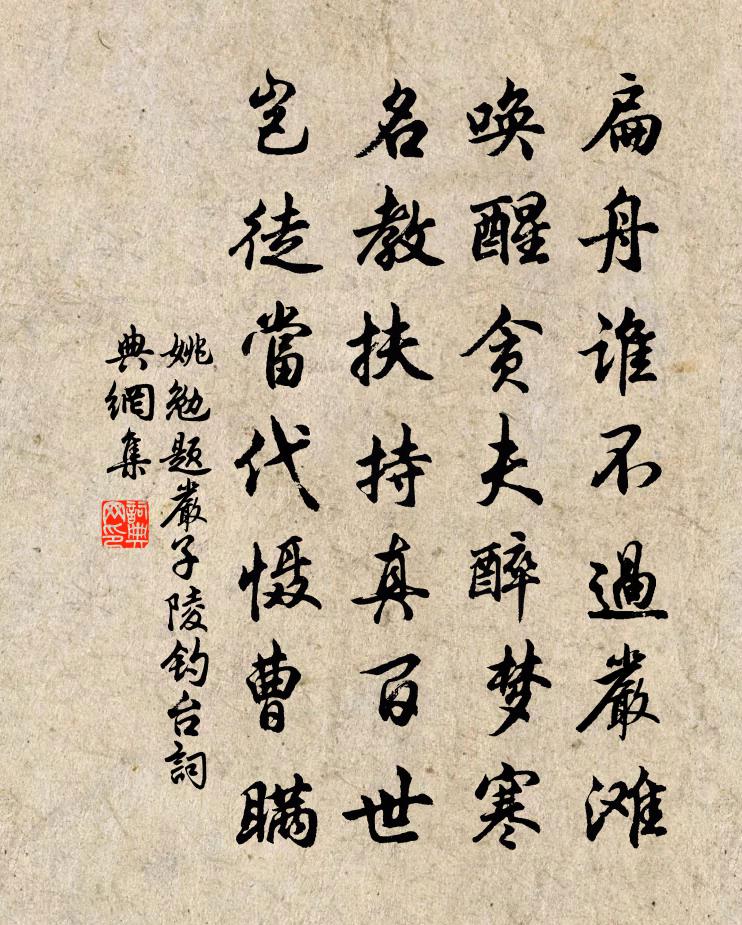 扁舟谁不過嚴滩
唤醒贪夫醉梦寒
名教扶持真百世
岂徒當代慑曹瞒
姚勉题嚴子陵钓台詞
典網集
詞典
网印